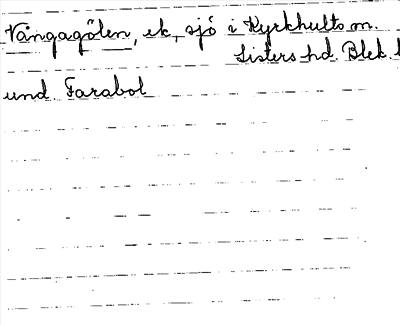 Vångagölen, ek, sjö i Kyrkhults m.
Listers hd. Blek. l
und. Farabol